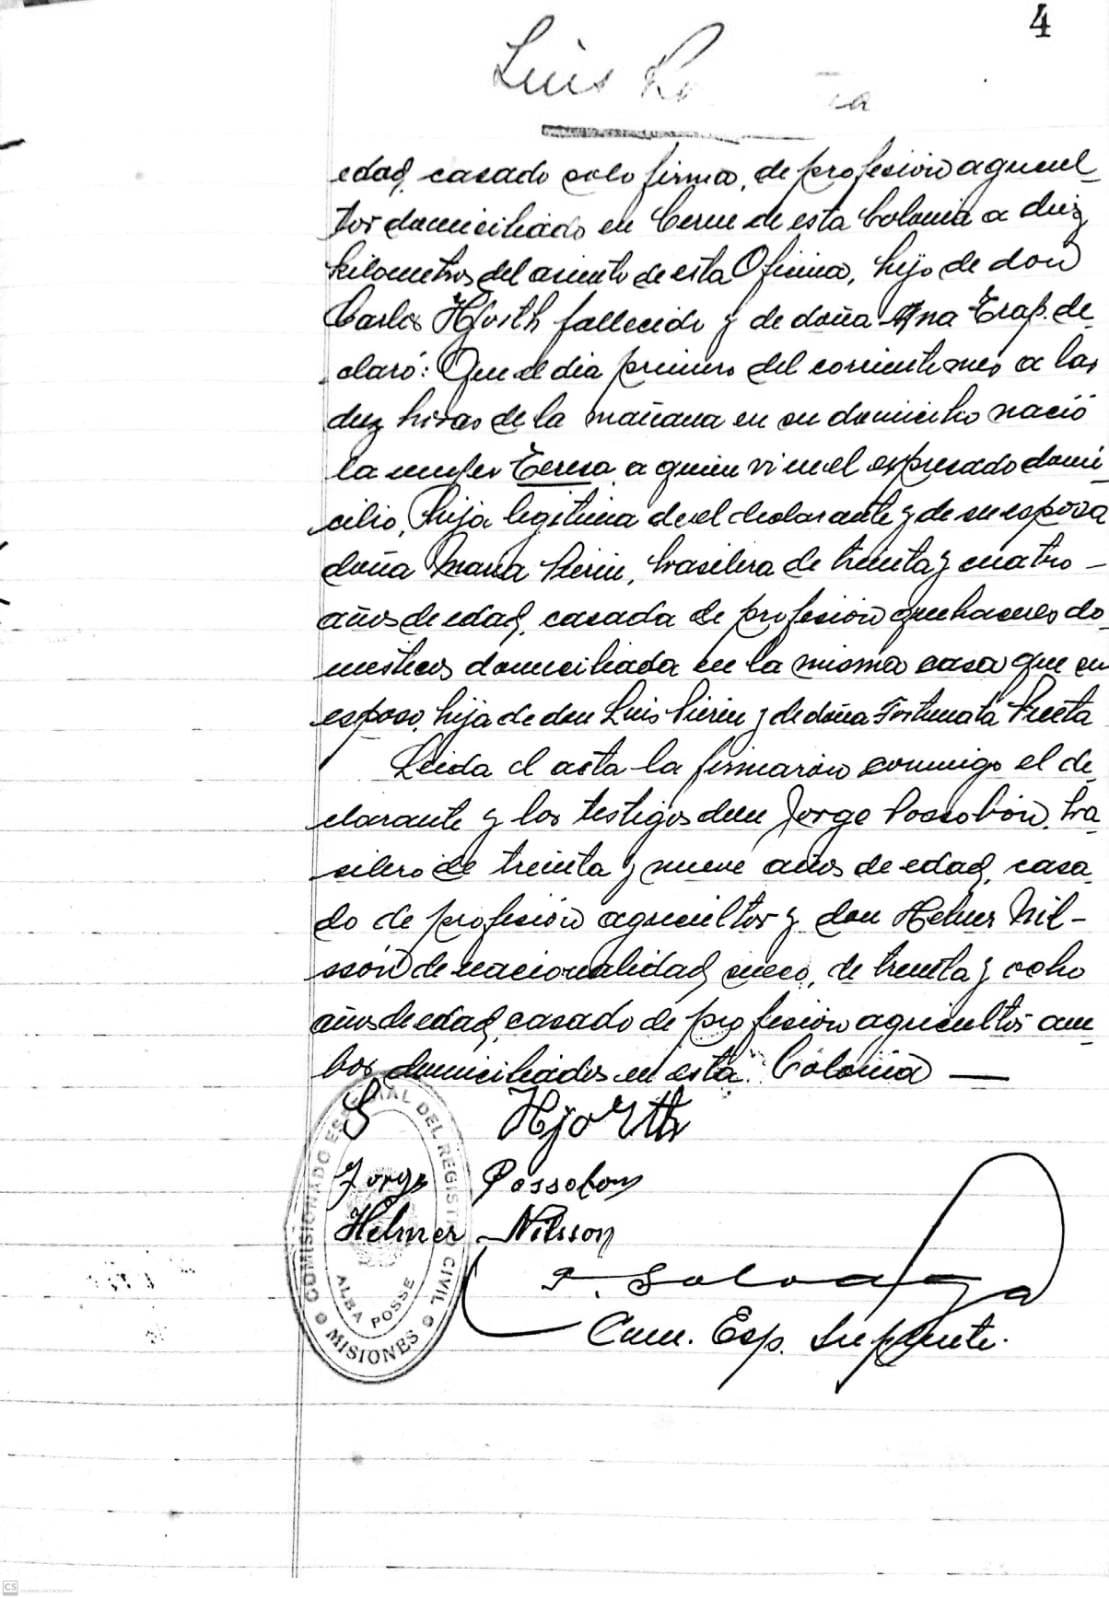 4
Luis
edad, casado solo firma, de profesión agricul-
tor domiciliado en Cerne de esta Colonia a diez
kilometros del asiento de esta Oficina, hijo de don
Carlos Hjorth fallecido y de doña Ana Trap. de-
claró: Que el dia primero del corriente mes a las
diez horas de la mañana en su domicilio nació
la mujer Teresa a quien vi en el expresado domi-
cilio, hija legitima de el declarante y de su esposa
doña Maria Pierin, brasilera de treinta y cuatro -
años de edad, casada de profesión quehaseres do-
mesticos domiciliada en la misma casa que su
esposo, hija de don Luis Pierin y de doña Fortunata
Leida el acta la firmaron conmigo el de-
clarante y los testigos don Jorge Possobón, bra-
silero de treinta y nueve años de edad, casa-
do de profesión agricultor y don Helner Nil-
sson de nacionalidad sueco, de treinta y ocho
años de edad, casado de profesión agricultor am-
bos domiciliados en esta Colonia —
S Hjorth
Jorge Possobon
Helner Nilsson
Com. Esp. Suplente.
COMISIONADO ESPECIAL DEL REGISTRO CIVIL
ALBA POSSE
MISIONES
CS